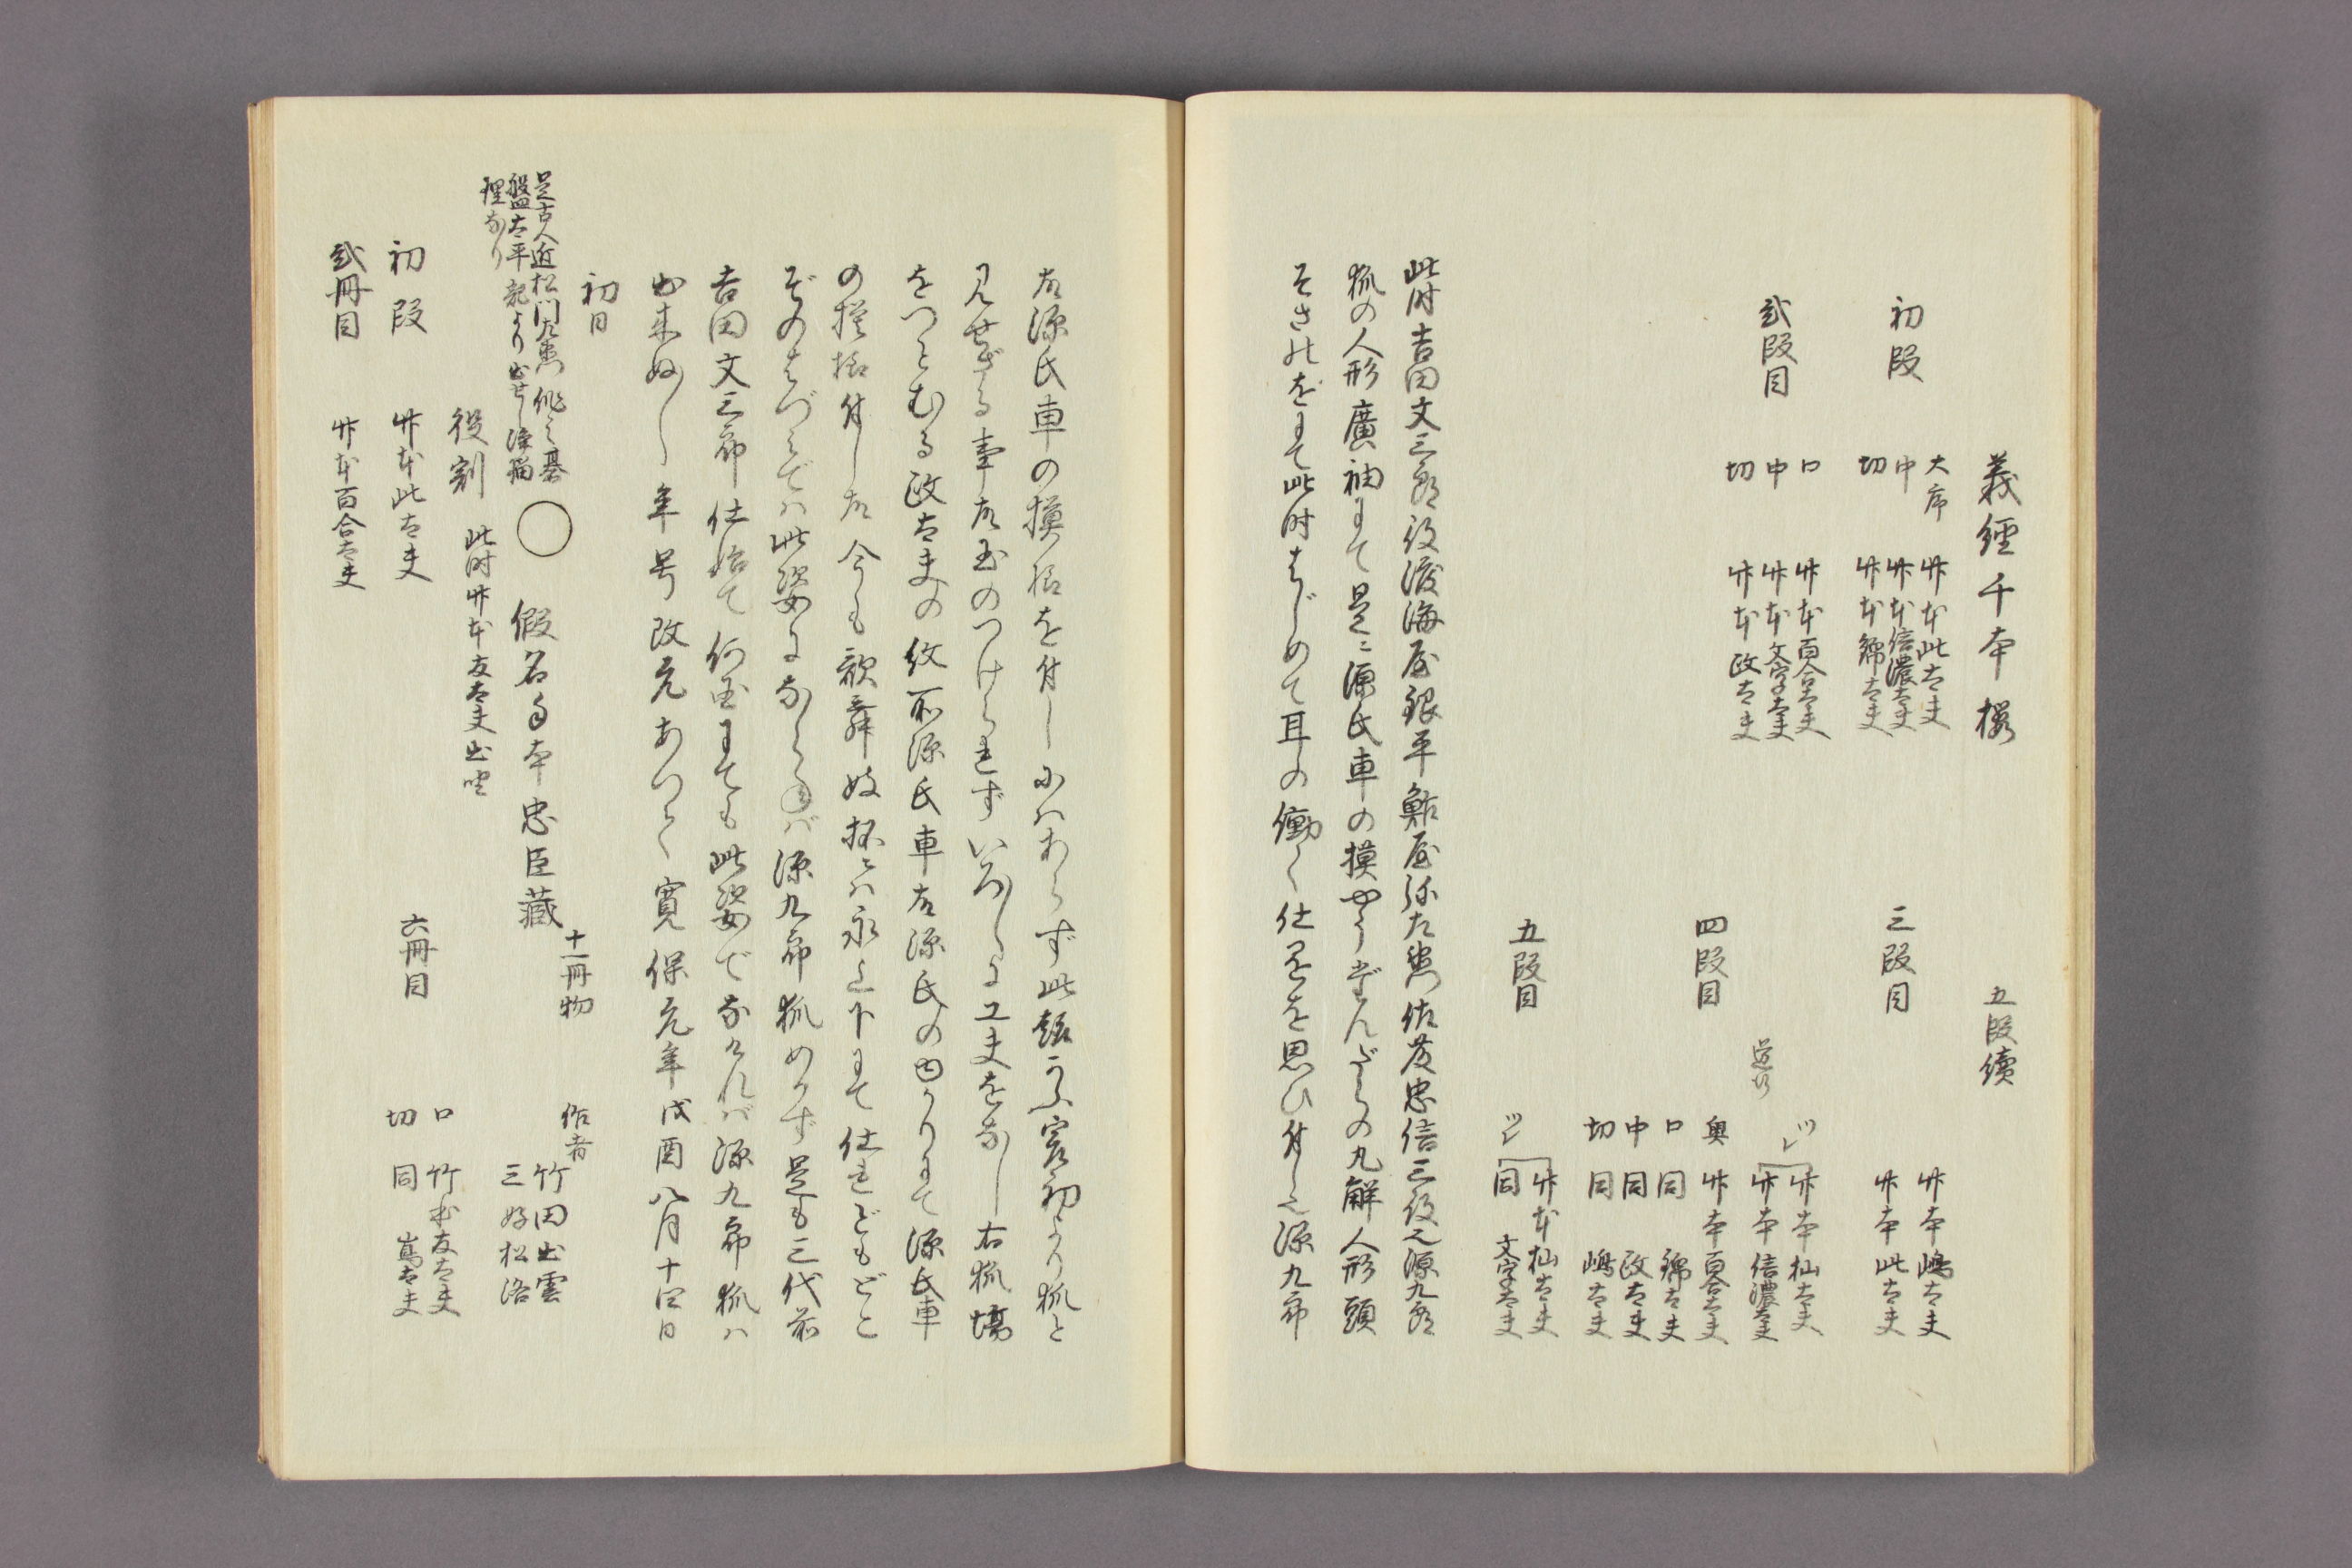 義經千本櫻 五段續
初段
大序 竹本此太夫
中 竹本信濃太夫
切 竹本錦太夫
弐段目
口 竹本百合太夫
中 竹本文字太夫
切 竹本政太夫
三段目
竹本嶋太夫
竹本此太夫
四段目
道行
ツレ 竹本杣太夫
竹本信濃太夫
奥 竹本百合太夫
口 同 錦太夫
中 同 政太夫
切 同 嶋太夫
五段目
竹本杣太夫
ツレ 同 文字太夫
此時吉田文三郎役渡海屋銀平鮓屋弥左衛門佐藤忠信三役也源九郎
狐の人形廣袖にて是に源氏車の摸やうぎんだらの丸觧人形頭
そさのをにて此時はじめて耳の働く仕を思ひ付し也源九郎
故源氏車の摸様を付しにはあらず此趣かふ宮初より狐と
見せざる事故玉のつけられずいろ／＼に工夫をなし右狐場
をつとむる政太夫の紋所源氏車故源氏のゆかりにて源氏車
の摸様付し故今も歌舞妓抔には永上下にて仕れどもどこ
ぞのはづみでは此姿にならねば源九郎狐めかず是も三代前
吉田文三郎仕始て何国にても此姿でなければ源九郎狐は
出来ぬ／＼年号改元あつて寛保元年戊酉八月十四日
初日
是古人近松門左衛門作之碁
盤太平記より出せし浄瑠
理なり
○ 假名手本忠臣藏 十一冊物
作者 竹田出雲
三好松洛
役割 此時竹本友太夫出座
初段 竹本此太夫
弐冊目 竹本百合太夫
六冊目
口 竹本友太夫
切 同 嶌太夫